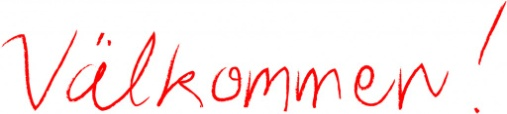 Välkommen!